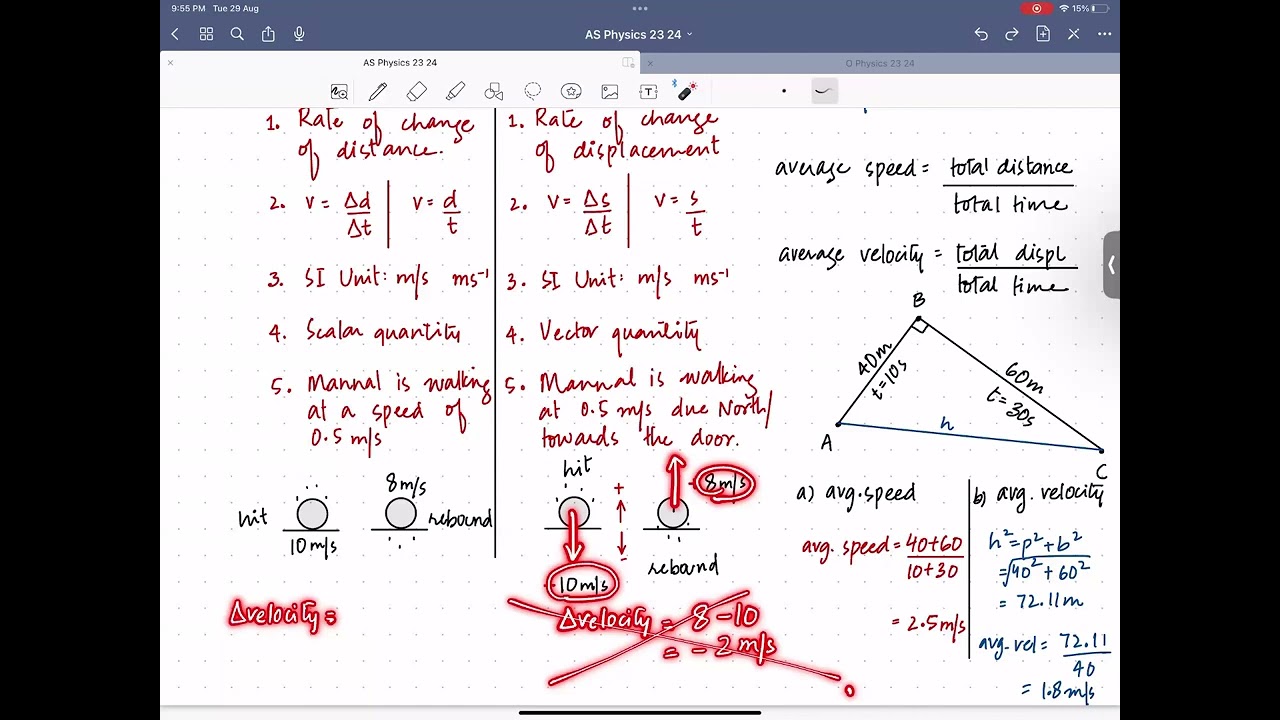 9:55 PM Tue 29 Aug
15%
AS Physics 23 24
AS Physics 23 24
O Physics 23 24
1. Rate of change
of distance.
2. v = Δd/Δt | v = d/t
3. SI Unit: m/s ms⁻¹
4. Scalar quantity
5. Mannal is walking
at a speed of
0.5 m/s
hit
10m/s
8m/s
rebound
Δvelocity =
1. Rate of change
of displacement
2. v = Δs/Δt | v = s/t
3. SI Unit: m/s ms⁻¹
4. Vector quantity
5. Mannal is walking
at 0.5 m/s due North/
towards the door.
hit
+
-
8m/s
rebound
-10m/s
Δvelocity = 8 - 10
= - 2 m/s
average speed = total distance
total time
average velocity = total displ
total time
B
40m
t=10s
60m
t=30s
A
h
C
a) avg. speed
avg. speed = 40+60
10+30
= 2.5 m/s
b) avg. velocity
h² = p² + b²
= √40² + 60²
= 72.11 m
avg. vel = 72.11
40
= 1.8 m/s